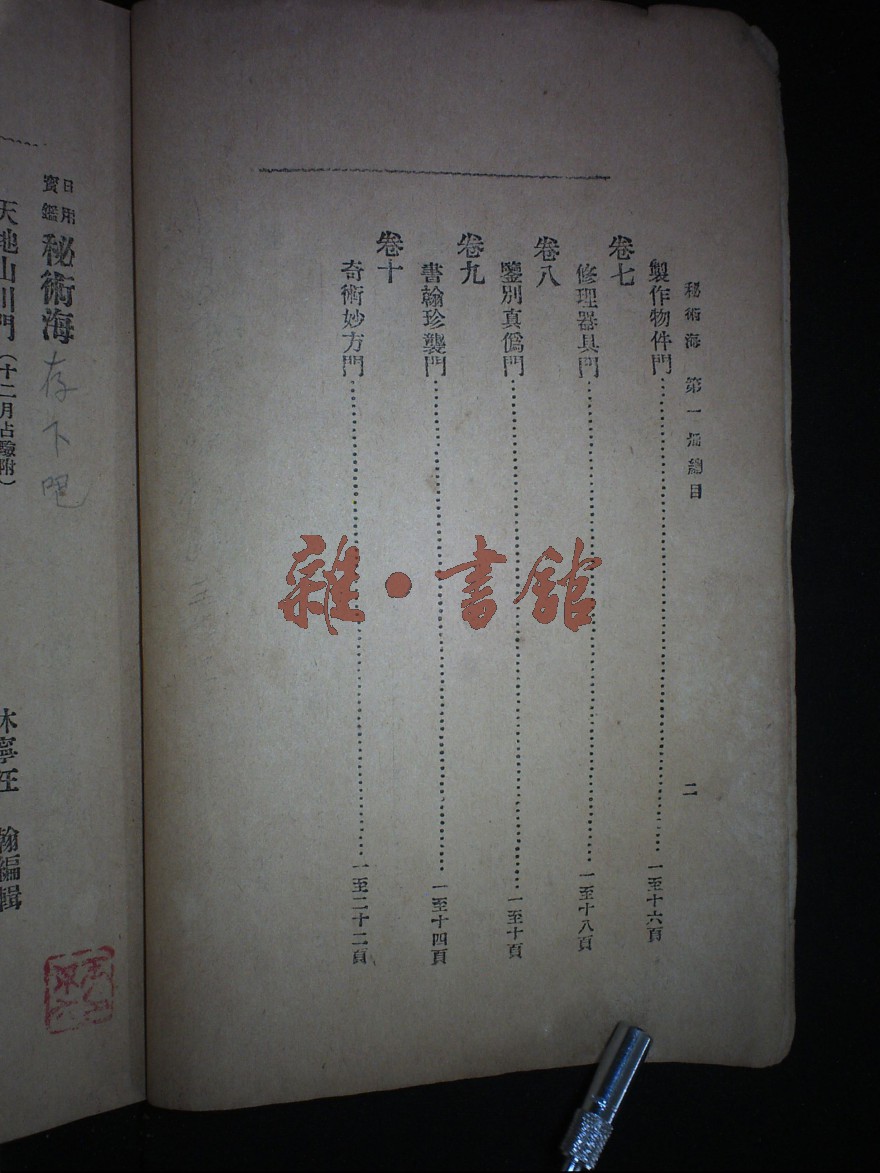 秘術海 第一册總目 二
製作物件門 一至十六頁
卷七
修理器具門 一至十八頁
卷八
鑒別真僞門 一至十頁
卷九
書翰珍襲門 一至十四頁
卷十
奇術妙方門 一至二十二頁
雜•書館
日用寶鑑 秘術海
存下吧
天地山川門(十二月占驗附)
休寧汪 翰編輯